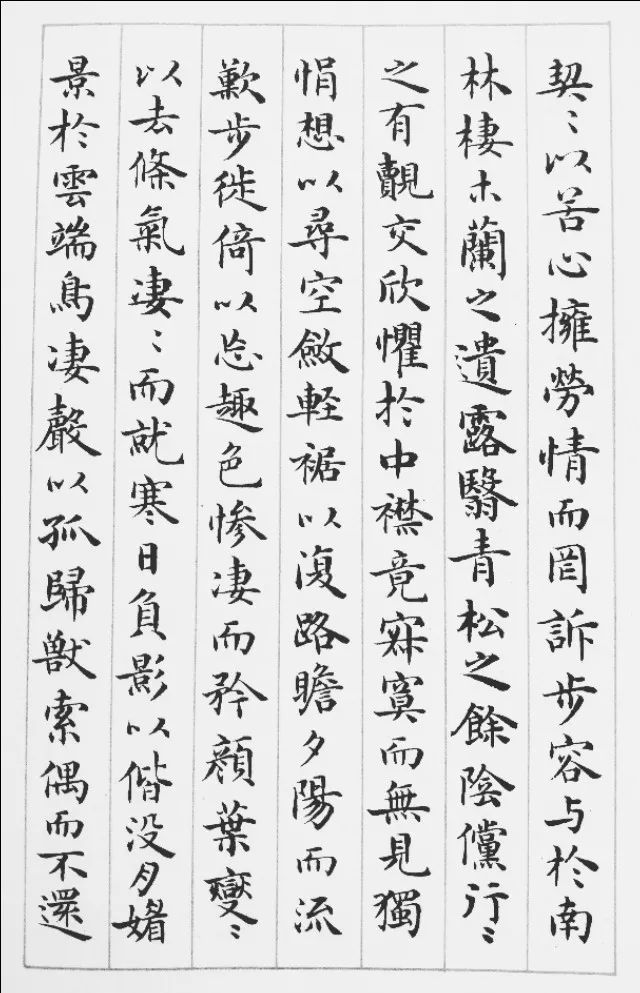 契〻以苦心擁勞情而罔訴步容与於南
林棲木蘭之遺露翳青松之餘陰儻行〻
之有覿交欣懼於中襟竟寂寞而無見獨
悁想以尋空斂軽裾以復路瞻夕陽而流
歎步徙倚以忘趣色惨凄而矜顔葉變〻
以去條氣凄〻而就寒日負影以偕没月媚
景於雲端鳥凄聲以孤歸獸索偶而不還